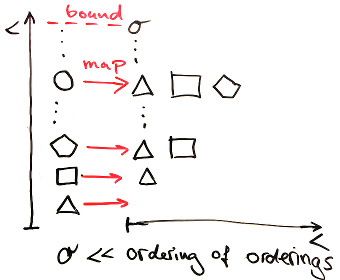 bound
< σ
map
<
σ << ordering of orderings